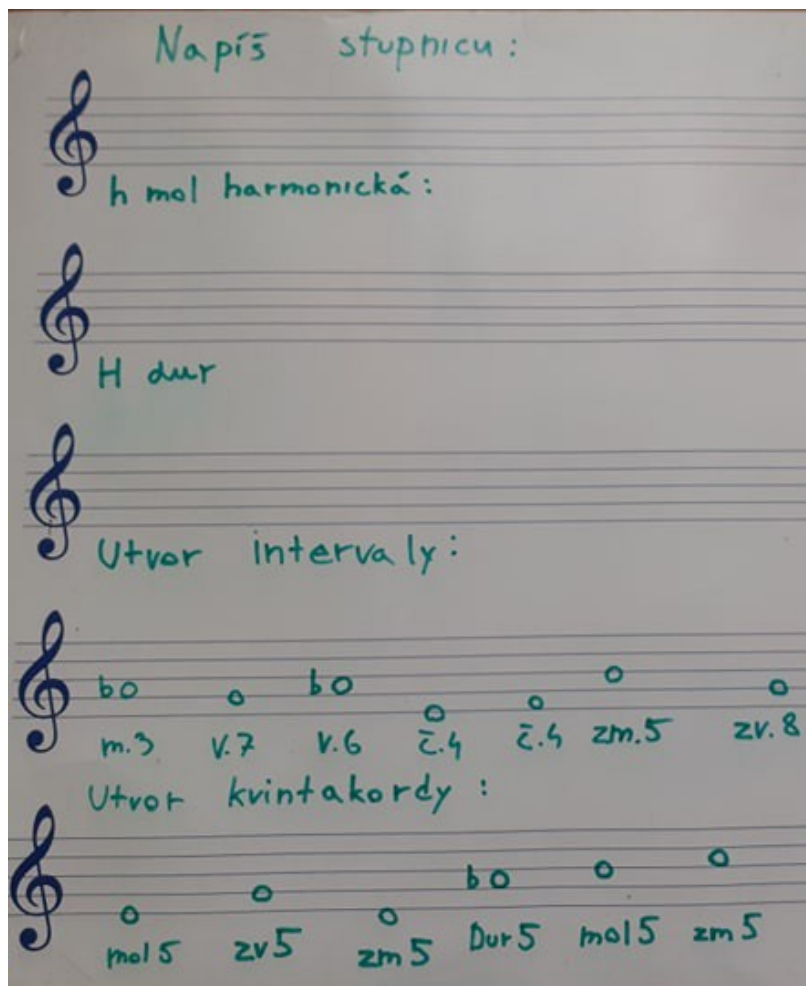 Napíš stupnicu:
h mol harmonická:
H dur
Utvor intervaly:
m.3 v.7 v.6 č.4 č.4 zm.5 zv.8
Utvor kvintakordy:
mol5 zv5 zm5 Dur5 mol5 zm5